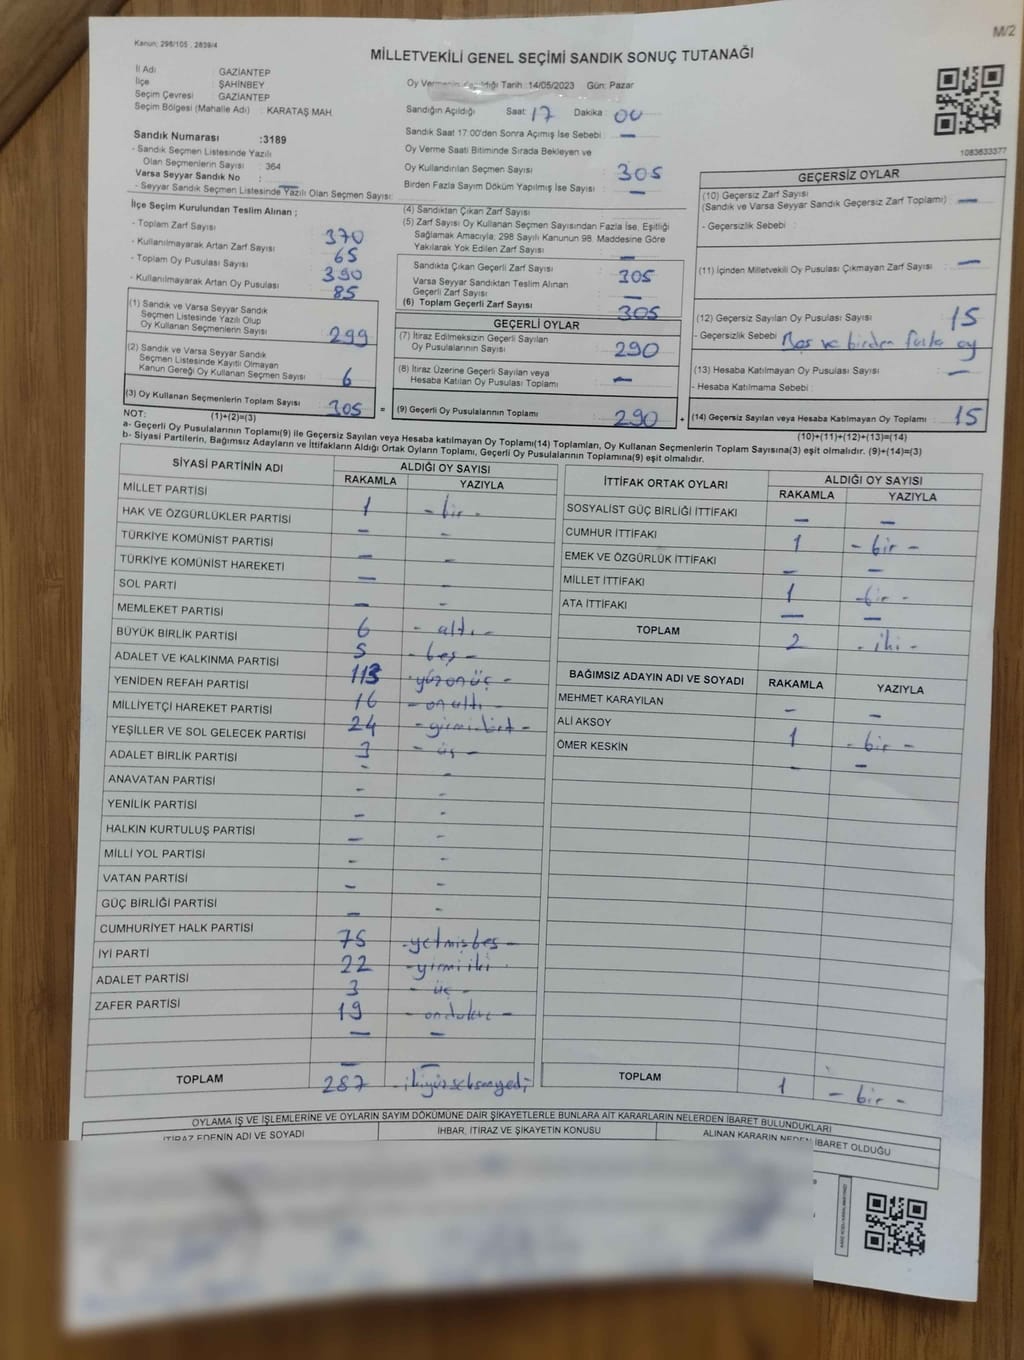 Kanun: 298/105 , 2839/4
M/2
MİLLETVEKİLİ GENEL SEÇİMİ SANDIK SONUÇ TUTANAĞI
İl Adı : GAZİANTEP
İlçe : ŞAHİNBEY
Seçim Çevresi : GAZİANTEP
Seçim Bölgesi (Mahalle Adı) : KARATAŞ MAH.
Oy Tarih :14/05/2023 Gün: Pazar
Sandığın Açıldığı Saat: 17 Dakika : 00
Sandık Saat 17:00'den Sonra Açımış İse Sebebi : —
Oy Verme Saati Bitiminde Sırada Bekleyen ve
Oy Kullandırılan Seçmen Sayısı : 305
Birden Fazla Sayım Döküm Yapılmış İse Sayısı : —
1083633377
Sandık Numarası :3189
- Sandık Seçmen Listesinde Yazılı
Olan Seçmenlerin Sayısı : 364
Varsa Seyyar Sandık No : —
- Seyyar Sandık Seçmen Listesinde Yazılı Olan Seçmen Sayısı:
İlçe Seçim Kurulundan Teslim Alınan ;
- Toplam Zarf Sayısı : 370
- Kullanılmayarak Artan Zarf Sayısı : 65
- Toplam Oy Pusulası Sayısı : 390
- Kullanılmayarak Artan Oy Pusulası : 85
(1) Sandık ve Varsa Seyyar Sandık
Seçmen Listesinde Yazılı Olup
Oy Kullanan Seçmenlerin Sayısı : 299
(2) Sandık ve Varsa Seyyar Sandık
Seçmen Listesinde Kayıtlı Olmayan
Kanun Gereği Oy Kullanan Seçmen Sayısı : 6
(3) Oy Kullanan Seçmenlerin Toplam Sayısı : 305 =
(1)+(2)=(3)
(4) Sandıktan Çıkan Zarf Sayısı :
(5) Zarf Sayısı Oy Kullanan Seçmen Sayısından Fazla İse, Eşitliği
Sağlamak Amacıyla; 298 Sayılı Kanunun 98. Maddesine Göre
Yakılarak Yok Edilen Zarf Sayısı : —
Sandıkta Çıkan Geçerli Zarf Sayısı : 305
Varsa Seyyar Sandıktan Teslim Alınan
Geçerli Zarf Sayısı : —
(6) Toplam Geçerli Zarf Sayısı : 305
GEÇERLİ OYLAR
(7) İtiraz Edilmeksizin Geçerli Sayılan
Oy Pusulalarının Sayısı : 290
(8) İtiraz Üzerine Geçerli Sayılan veya
Hesaba Katılan Oy Pusulası Toplamı : —
(9) Geçerli Oy Pusulalarının Toplamı : 290 +
GEÇERSİZ OYLAR
(10) Geçersiz Zarf Sayısı
(Sandık ve Varsa Seyyar Sandık Geçersiz Zarf Toplamı) : —
- Geçersizlik Sebebi :
(11) İçinden Milletvekili Oy Pusulası Çıkmayan Zarf Sayısı : —
(12) Geçersiz Sayılan Oy Pusulası Sayısı : 15
- Geçersizlik Sebebi : Boş ve birden fazla oy
(13) Hesaba Katılmayan Oy Pusulası Sayısı : —
- Hesaba Katılmama Sebebi :
(14) Geçersiz Sayılan veya Hesaba Katılmayan Oy Toplamı : 15
(10)+(11)+(12)+(13)=(14)
NOT:
a- Geçerli Oy Pusulalarının Toplamı(9) ile Geçersiz Sayılan veya Hesaba katılmayan Oy Toplamı(14) Toplamları, Oy Kullanan Seçmenlerin Toplam Sayısına(3) eşit olmalıdır. (9)+(14)=(3)
b- Siyasi Partilerin, Bağımsız Adayların ve İttifakların Aldığı Ortak Oyların Toplamı, Geçerli Oy Pusulalarının Toplamına(9) eşit olmalıdır.
SİYASİ PARTİNİN ADI ALDIĞI OY SAYISI
RAKAMLA YAZIYLA
MİLLET PARTİSİ 1 - bir -
HAK VE ÖZGÜRLÜKLER PARTİSİ — -
TÜRKİYE KOMÜNİST PARTİSİ — -
TÜRKİYE KOMÜNİST HAREKETİ — -
SOL PARTİ — -
MEMLEKET PARTİSİ 6 - altı -
BÜYÜK BİRLİK PARTİSİ 5 - beş -
ADALET VE KALKINMA PARTİSİ 113 - yüzonüç -
YENİDEN REFAH PARTİSİ 16 - onaltı -
MİLLİYETÇİ HAREKET PARTİSİ 24 - yirmidört -
YEŞİLLER VE SOL GELECEK PARTİSİ 3 - üç -
ADALET BİRLİK PARTİSİ - -
ANAVATAN PARTİSİ - -
YENİLİK PARTİSİ - -
HALKIN KURTULUŞ PARTİSİ - -
MİLLİ YOL PARTİSİ - -
VATAN PARTİSİ - -
GÜÇ BİRLİĞİ PARTİSİ — -
CUMHURİYET HALK PARTİSİ 75 - yetmişbeş -
İYİ PARTİ 22 - yirmiiki -
ADALET PARTİSİ 3 - üç -
ZAFER PARTİSİ 19 - ondokuz -
— —
— —
TOPLAM 287 - ikiyüzseksenyedi
İTTİFAK ORTAK OYLARI ALDIĞI OY SAYISI
RAKAMLA YAZIYLA
SOSYALİST GÜÇ BİRLİĞİ İTTİFAKI — —
CUMHUR İTTİFAKI 1 - bir -
EMEK VE ÖZGÜRLÜK İTTİFAKI — —
MİLLET İTTİFAKI 1 - bir -
ATA İTTİFAKI — —
TOPLAM 2 - iki -
BAĞIMSIZ ADAYIN ADI VE SOYADI RAKAMLA YAZIYLA
MEHMET KARAYILAN - -
ALİ AKSOY 1 - bir -
ÖMER KESKİN - —
TOPLAM 1 - bir -
OYLAMA İŞ VE İŞLEMLERİNE VE OYLARIN SAYIM DÖKÜMÜNE DAİR ŞİKAYETLERLE BUNLARA AİT KARARLARIN NELERDEN İBARET BULUNDUKLARI
İTİRAZ EDENİN ADI VE SOYADI İHBAR, İTİRAZ VE ŞİKAYETİN KONUSU ALINAN KARARIN NEDEN İBARET OLDUĞU